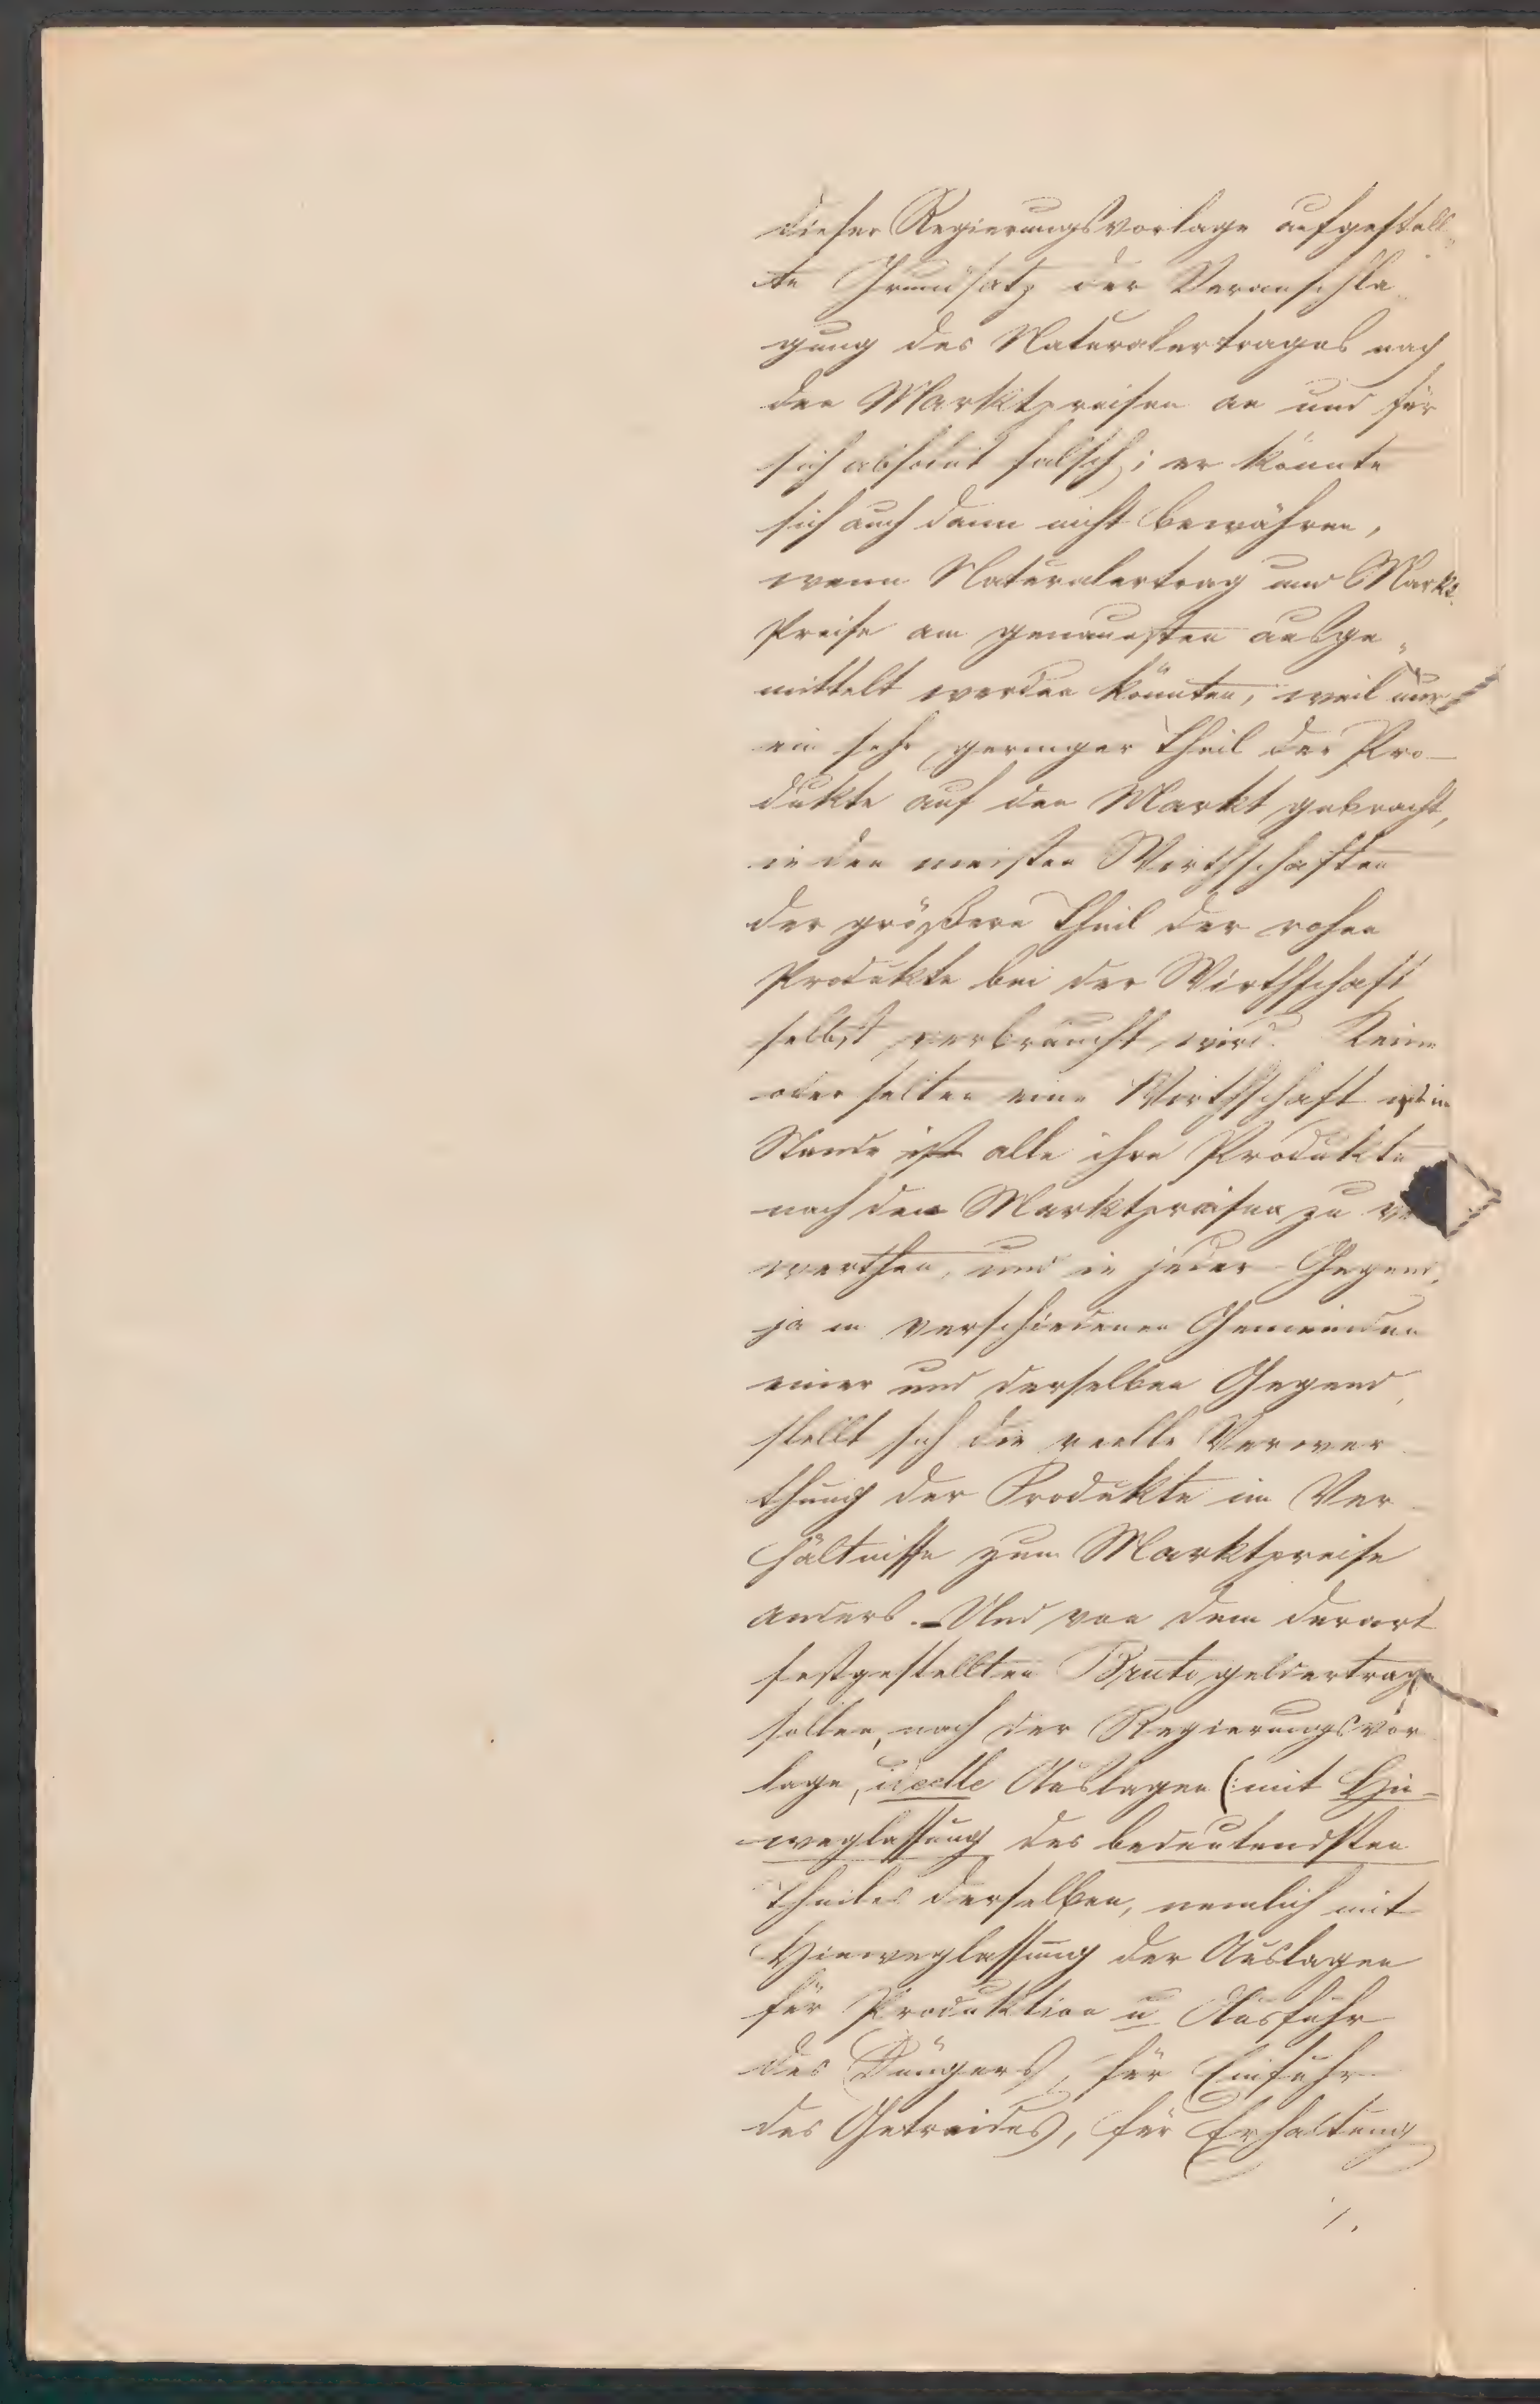 dieser Regierungsvorlage aufgestell„
te Grundsatz der Veranschla„
gung des Naturalertrages nach
den Marktpreisen an und für
sich absolut falsch; er könnte
sich auch dann nicht bewähren,
wenn Naturalertrag und Markt„
Preise am genauesten ausge„
mittelt werden könnten, weil nur
ein sehr geringer Theil der Pro—
dukte auf den Markt gebracht,
in den meisten Wirthschaften
der größere Theil der rohen
Produkte bei der Wirthschaft
selbst verbraucht wird. Keine
oder selten eine Wirthschaft ist im
Stande ist alle ihre Produkte
nach den Marktpreisen zu
werthen, und in jeder Gegend,
ja in verschiedenen Gemeinden
einer und derselben Gegend,
stellt sich die reelle Verwer
thung der Produkte im Ver
hältnisse zum Marktpreise
anders. – Und von dem derart
festgestellten Brutogeldertrage
sollen, nach der Regierungsvor
lage, ideelle Auslagen (: mit Hin=
weglassung des bedeutendsten
Theiles derselben, nemlich mit
Hinweglassung der Auslagen
für Produktion u Ausfuhr
des Düngers, für Einfuhr
des Getreides, für Erhaltung
/.